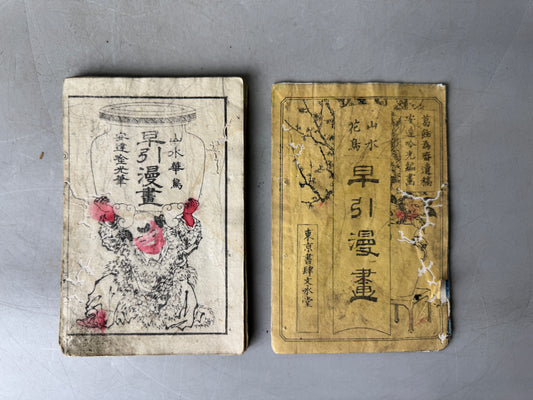 山水華鳥
早引漫畫
安達吟光筆
葛飾為齋遺稿
安達吟光縮寫
山水
花鳥
早引漫畫
東京書肆文永堂